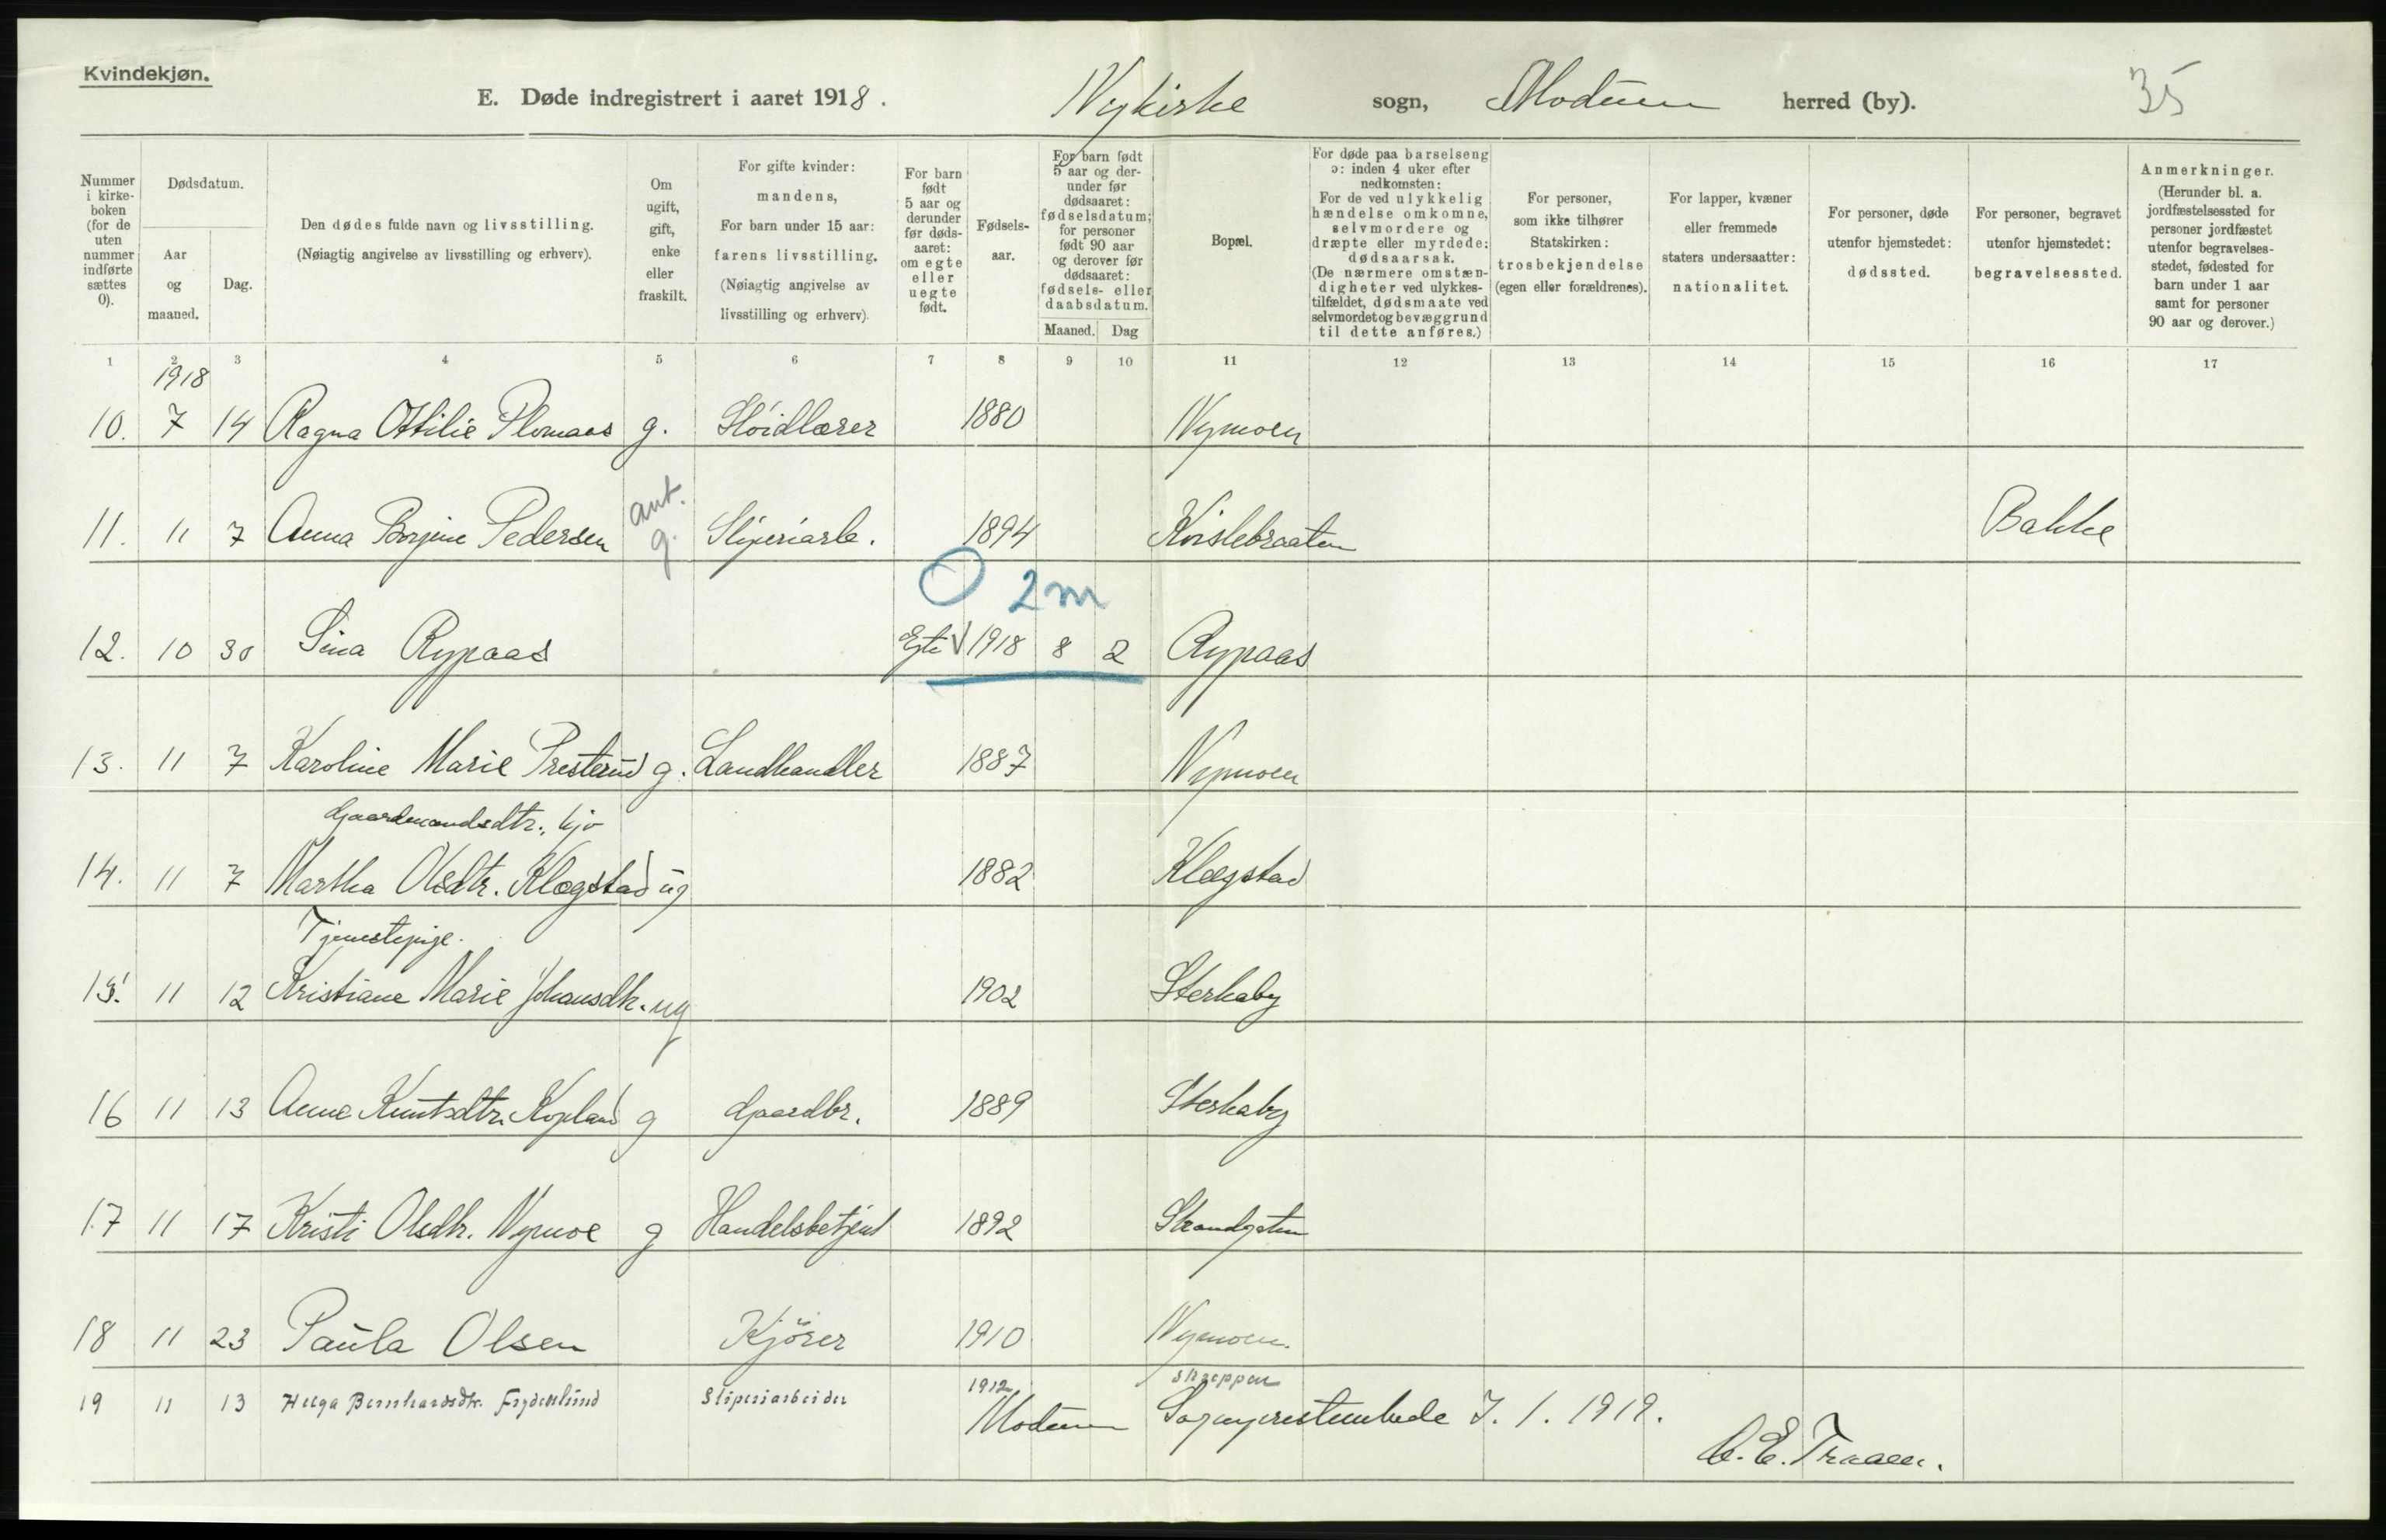 Kvindekjøn.
E. Døde indregistrert i aaret 1918. Nykirke sogn, Modum herred (by). 35
Nummer i kirke-boken (for de uten nummer indførte sættes 0).
Dødsdatum.
Aar og maaned.
Dag.
Den dødes fulde navn og livsstilling.
(Nøiagtig angivelse av livsstilling og erhverv).
Om ugift, gift, enke eller fraskilt.
For gifte kvinder: mandens,
For barn under 15 aar: farens livsstilling.
(Nøiagtig angivelse av livsstilling og erhverv).
For barn født 5 aar og derunder før døds-aaret: om egte eller uegte født.
Fødsels-aar.
For barn født 5 aar og der-under før dødsaaret: fødselsdatum; for personer født 90 aar og derover før dødsaaret: fødsels- eller daabsdatum.
Maaned. Dag
Bopæl.
For døde paa barselseng ɔ: inden 4 uker efter nedkomsten:
For de ved ulykkelig hændelse omkomne, selvmordere og dræpte eller myrdede: dødsaarsak.
(De nærmere omstæn-digheter ved ulykkes-tilfældet, dødsmaate ved selvmordet og bevæggrund til dette anføres.)
For personer, som ikke tilhører Statskirken: trosbekjendelse (egen eller forældrenes).
For lapper, kvæner eller fremmede staters undersaatter: nationalitet.
For personer, døde utenfor hjemstedet: dødssted.
For personer, begravet utenfor hjemstedet: begravelsessted.
Anmerkninger.
(Herunder bl. a. jordfæstelsessted for personer jordfæstet utenfor begravelses-stedet, fødested for barn under 1 aar samt for personer 90 aar og derover.)
1 2 3 4 5 6 7 8 9 10 11 12 13 14 15 16 17
1918
10. 7 14 Ragna Ottilie Plomaas g. Sløidlærer 1880 Nymoen
ant.
11. 11 7 Anna Borgine Pedersen g. Sliperiarb. 1894 Kvislebraaten Bakke
2 m
12. 10 30 Sina Rypaas Egte V 1918 8 2 Rypaas
13. 11 7 Karoline Marie Presterud g. Landhandler 1887 Nymoen
Gaardmandsdtr., hjv
14. 11 7 Martha Olsdtr. Klægstad ug 1882 Klægstad
Tjenestepige.
15. 11 12 Kristiane Marie Johansdtr. ug 1902 Sterkaby
16 11 13 Anne Knutsdtr. Kopland g Gaardbr. 1889 Sterkaby
17 11 17 Kristi Olsdtr. Nymoe g Handelsbetjent 1892 Strandgaten
18 11 23 Paula Olsen Kjører 1910 Nymoen.
19 11 13 Helga Bernhardsdtr. Frydenlund Sliperiarbeider 1912 Skreppen
Modum Sogneprestembede 7. 1. 1919.
C. E. Traaen.